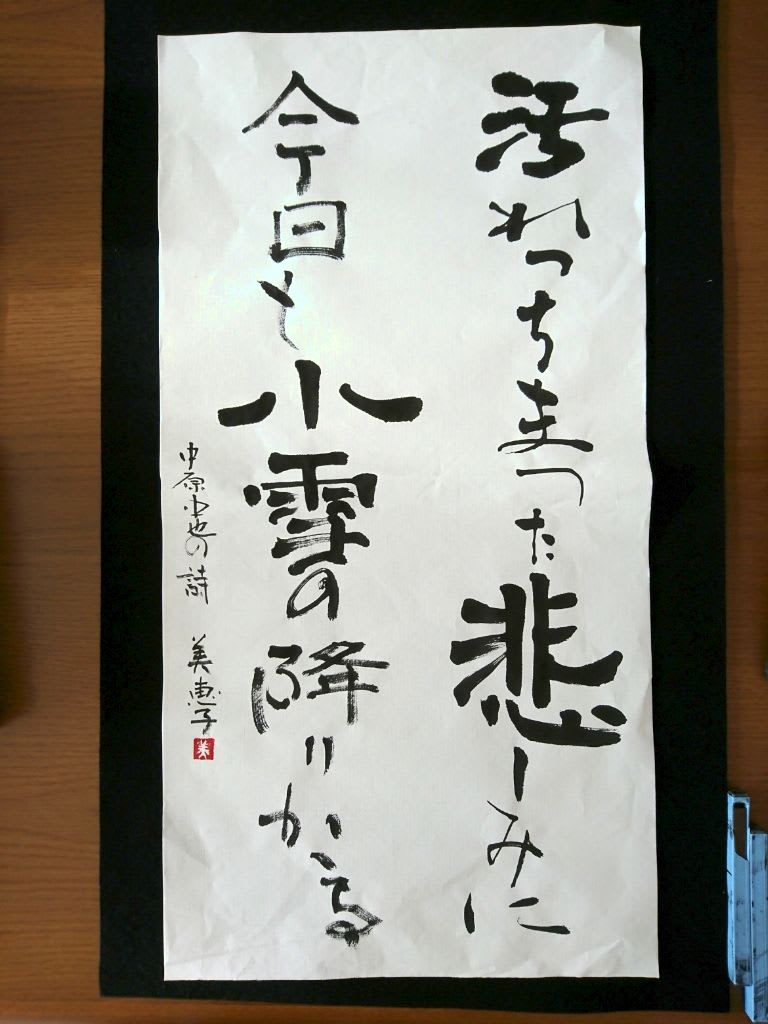 汚れつちまつた悲しみに
今日も小雪の降りかゝる
中原中也の詩 美恵子
美